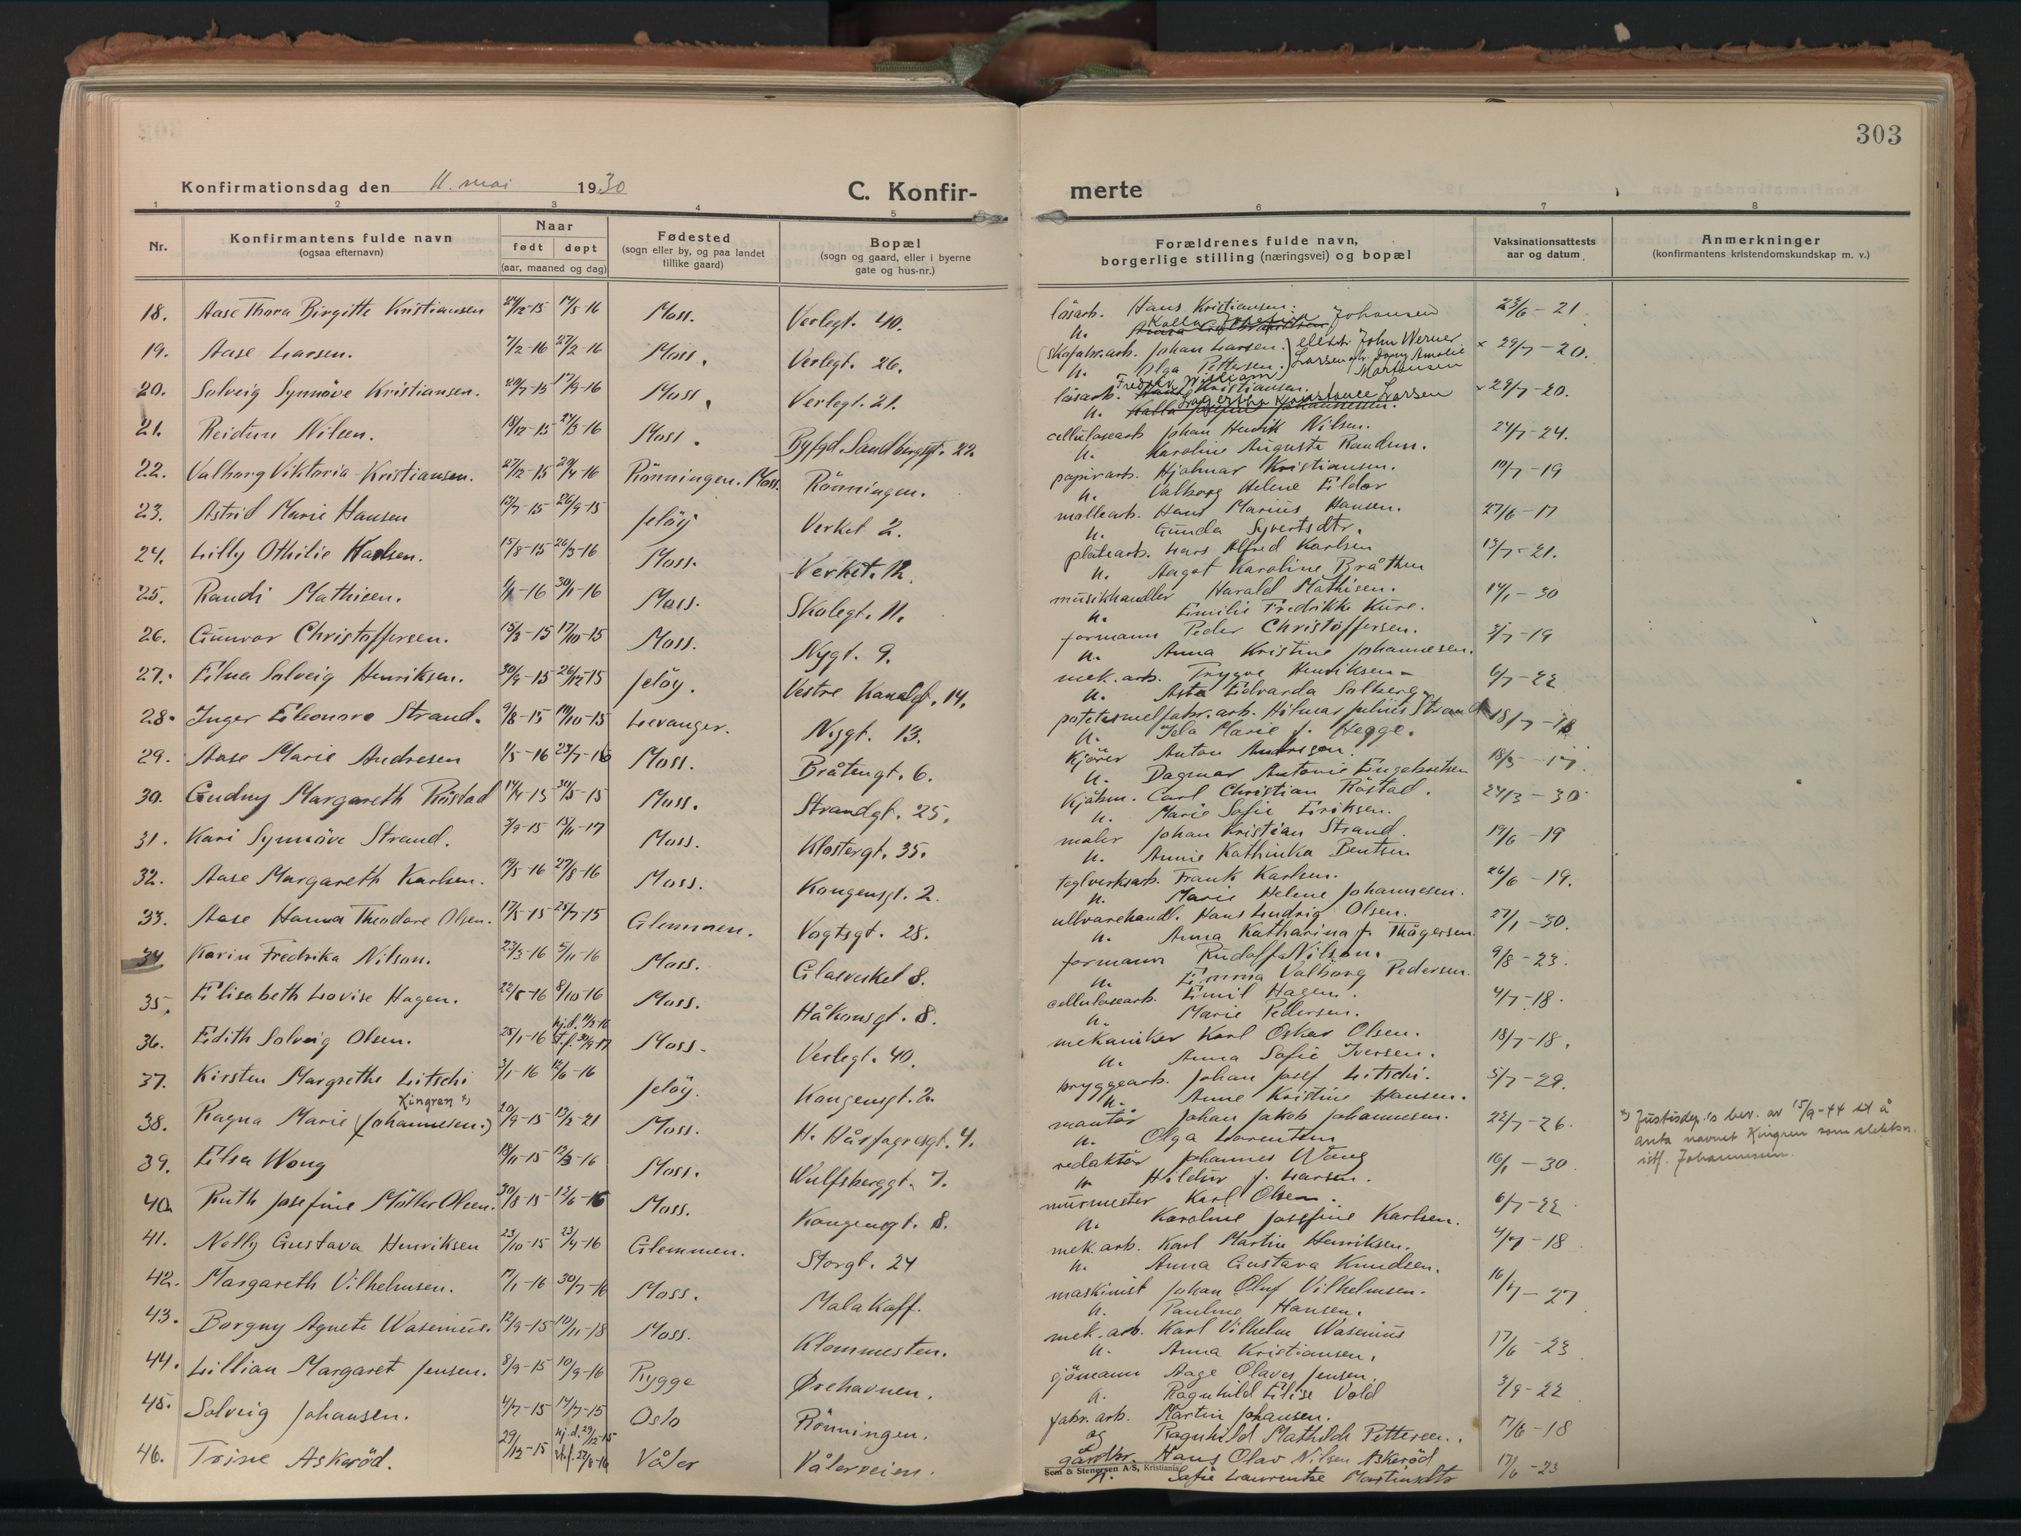 303
Konfirmationsdag den 11. mai 1930 C. Konfir- merte
1 2 3 4 5 6 7 8
Nr.
Konfirmantens fulde navn
(ogsaa efternavn)
Naar
født døpt
(aar, maaned og dag)
Fødested
(sogn eller by, og paa landet
tillike gaard)
Bopæl
(sogn og gaard, eller i byerne
gate og hus-nr.)
Forældrenes fulde navn,
borgerlige stilling (næringsvei) og bopæl
Vaksinationsattests
aar og datum
Anmerkninger
(konfirmantens kristendomskundskap m. v.)
18. Aase Thora Birgitte Kristiansen 24/12-15 14/5-16 Moss. Verlegt. 40. løsarb. Hans Kristiansen. 23/6-21
u. Kalla Josefine Johansen
19. Aase Larsen. 7/2-16 27/2-16 Moss. Verlegt. 26. (Skofabr.arb. Johan Larsen.) elektr. John Werner x 29/7-20.
u. Olga Pettersen. Larsen Amalie Martinsen
20. Solveig Synnöve Kristiansen. 20/7-15 17/9-16 Moss. Verlegt. 21. løsarb. Fredrik William Kristiansen. x 29/7-20.
u. Lagertha Konstance Larsen
21. Reidun Nilsen. 18/12-15 24/3-16 Moss. Byfgd. Sandbergt. 22. cellulosearb. Johan Henrik Nilsen. 24/7-24.
u. Karoline Auguste Randem.
22. Valborg Viktoria Kristiansen. 27/12-15 29/4-16 Rönningen. Moss. Rönningen. papirarb. Hjalmar Kristiansen. 10/7-19
u. Valborg Helene Eldor
23. Astrid Marie Hansen 12/7-15 26/9-15 Jelöy Verket 2. møllearb. Hans Marius Hansen. 27/6-17
u. Gunda Syvertsdtr.
24. Lilly Othilie Karlsen. 15/8-15 26/3-16 Moss. Verket. 12. platearb. Lars Alfred Karlsen 13/7-21.
u. Aagot Karoline Bråthen
25. Randi Mathisen. 4/1-16 30/1-16 Moss. Skolegt. 11. musikhandler Harald Mathisen. 14/1-30
u. Emilie Fredrikke Kure.
26. Gunvor Christoffersen. 15/3-15 17/10-15 Moss. Nygt. 9. formann Peder Christoffersen. 3/7-19
u. Anna Kristine Johannesen.
27. Elna Solveig Henriksen. 30/9-15 26/12-15 Jelöy. Vestre Kanalgt. 14. mek. arb. Trygve Henriksen 6/7-22
u. Asta Edvarda Solberg.
28. Inger Eleonore Strand. 9/8-15 10/10-15 Levanger. Nygt. 13. potetmelfabr. arb. Hilmar Julius Strand 18/7-18
u. Ida Marie J. Hegge.
29. Aase Marie Andresen 1/5-16 23/7-16 Moss. Bråtengt. 6. kjörer Anton Andresen. 18/5-17
u. Dagmar Antonie Engebretsen
30. Gudny Margareth Röstad 14/4-15 30/5-15 Moss. Strandgt. 25. kjöbm. Carl Christian Röstad. 24/3-30
u. Marie Sofie Eriksen.
31. Kari Synnöve Strand. 3/9-15 15/11-17 Moss. Klostergt. 35. maler Johan Kristian Strand. 19/6-19
u. Annie Kathinka Bentsen
32. Aase Margareth Karlsen. 19/5-16 27/8-16 Moss. Kongensgt. 2. teglverksarb. Frank Karlsen. 26/6-19.
u. Marie Helene Johannesen.
33. Aase Hanna Theodore Olsen. 17/5-15 25/7-15 Glemmen. Vogtsgt. 28. ullvarehandl. Hans Ludvig Olsen. 27/1-30.
u. Anna Katharina J. Thögersen.
34 Karin Fredrika Nilson. 23/3-16 5/11-16 Moss. Glasverket 8. formann Rudolf Nilson. 9/8-23.
u. Emma Valborg Pedersen.
35. Elisabeth Lovise Hagen. 22/8-16 8/10-16 Moss. Håkonsgt. 8. cellulosearb. Emil Hagen. 4/7-18.
u. Marie Pedersen.
36. Edith Solveig Olsen. 25/1-16 hj.d. 11/3-16 st.f. 30/9-17 Moss. Verlegt. 40. mekaniker Karl Oskar Olsen. 18/7-18.
u. Anna Sofie Iversen.
37. Kirsten Margrethe Litschi 3/1-16 12/6-16 Jelöy. Kongensgt. 2. bryggearb. Johan Josef Litschi. 5/7-29.
u. Anne Kristine Hansen.
Kingren x)
38. Ragna Marie (Johannesen.) 20/9-15 13/2-21 Moss. H. Hårfagresgt. 4. montør Johan Jakob Johannesen. 22/7-26.
u. Olga Lorentzen
x) Justisdep.s bev. av 15/9-44 til å
anta navnet Kingren som slektsn.
istf. Johannesen.
39. Elsa Wong 18/11-15 12/3-16 Moss. Wulfsberggt. 7. redaktör Johannes Wong 16/1-30.
u. Hildur J. Larsen.
40. Ruth Josefine Möller Olsen. 30/8-15 12/6-16 Moss. Kongensgt. 8. murmester Karl Olsen. 6/7-22
u. Karoline Josefine Karlsen.
41. Nelly Gustava Henriksen 23/10-15 23/4-16 Glemmen. Storgt. 24 mek. arb. Karl Martin Henriksen. 4/7-18
u. Anna Gustava Knudsen.
42. Margareth Vilhelmsen. 17/1-16 30/7-16 Moss. Malakoff. maskinist Johan Oluf Vilhelmsen. 16/7-27
u. Pauline Hansen.
43. Borgny Agnete Wasenius. 12/9-15 10/11-18 Moss. Klommesten. mek. arb. Karl Vilhelm Wasenius 17/6-23
u. Anna Kristiansen.
44. Lillian Margaret Jensen. 8/9-15 10/9-16 Rygge Ørehavnen. gjömann Aage Olaves Jensen. 3/9-22
u. Ragnhild Elise Vold
45. Solveig Johansen. 4/7-15 14/7-15 Oslo Rönningen. fabr. arb. Martin Johansen. 17/6-18
og Ragnhild Mathilde Pettersen.
46. Trine Askeröd. 29/12-15 hj.d. 29/12-15 st.f. 27/8-16 Våler Vålerveien. gårdbr. Hans Olav Nilsen Askeröd 17/6-23
u. Sofie Laurentze Martinsdtr
Sem & Stenersen A/S, Kristiania